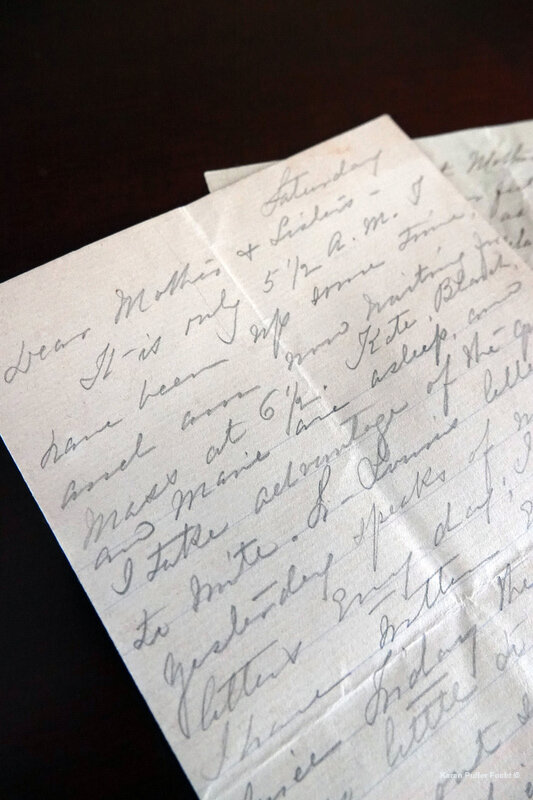 Saturday
Dear Mother & Sisters -
It is only 5 1/2 A.M. I
have been up some time,
and am now waiting for
Mass at 6 1/2. Kate, Blanch,
and Marie are asleep, and
I take advantage of the
to write. St. Louis letter
yesterday speaks of
letters every day; I
I have written
since Friday, the
little to
out
Karen Pulfer Focht ©